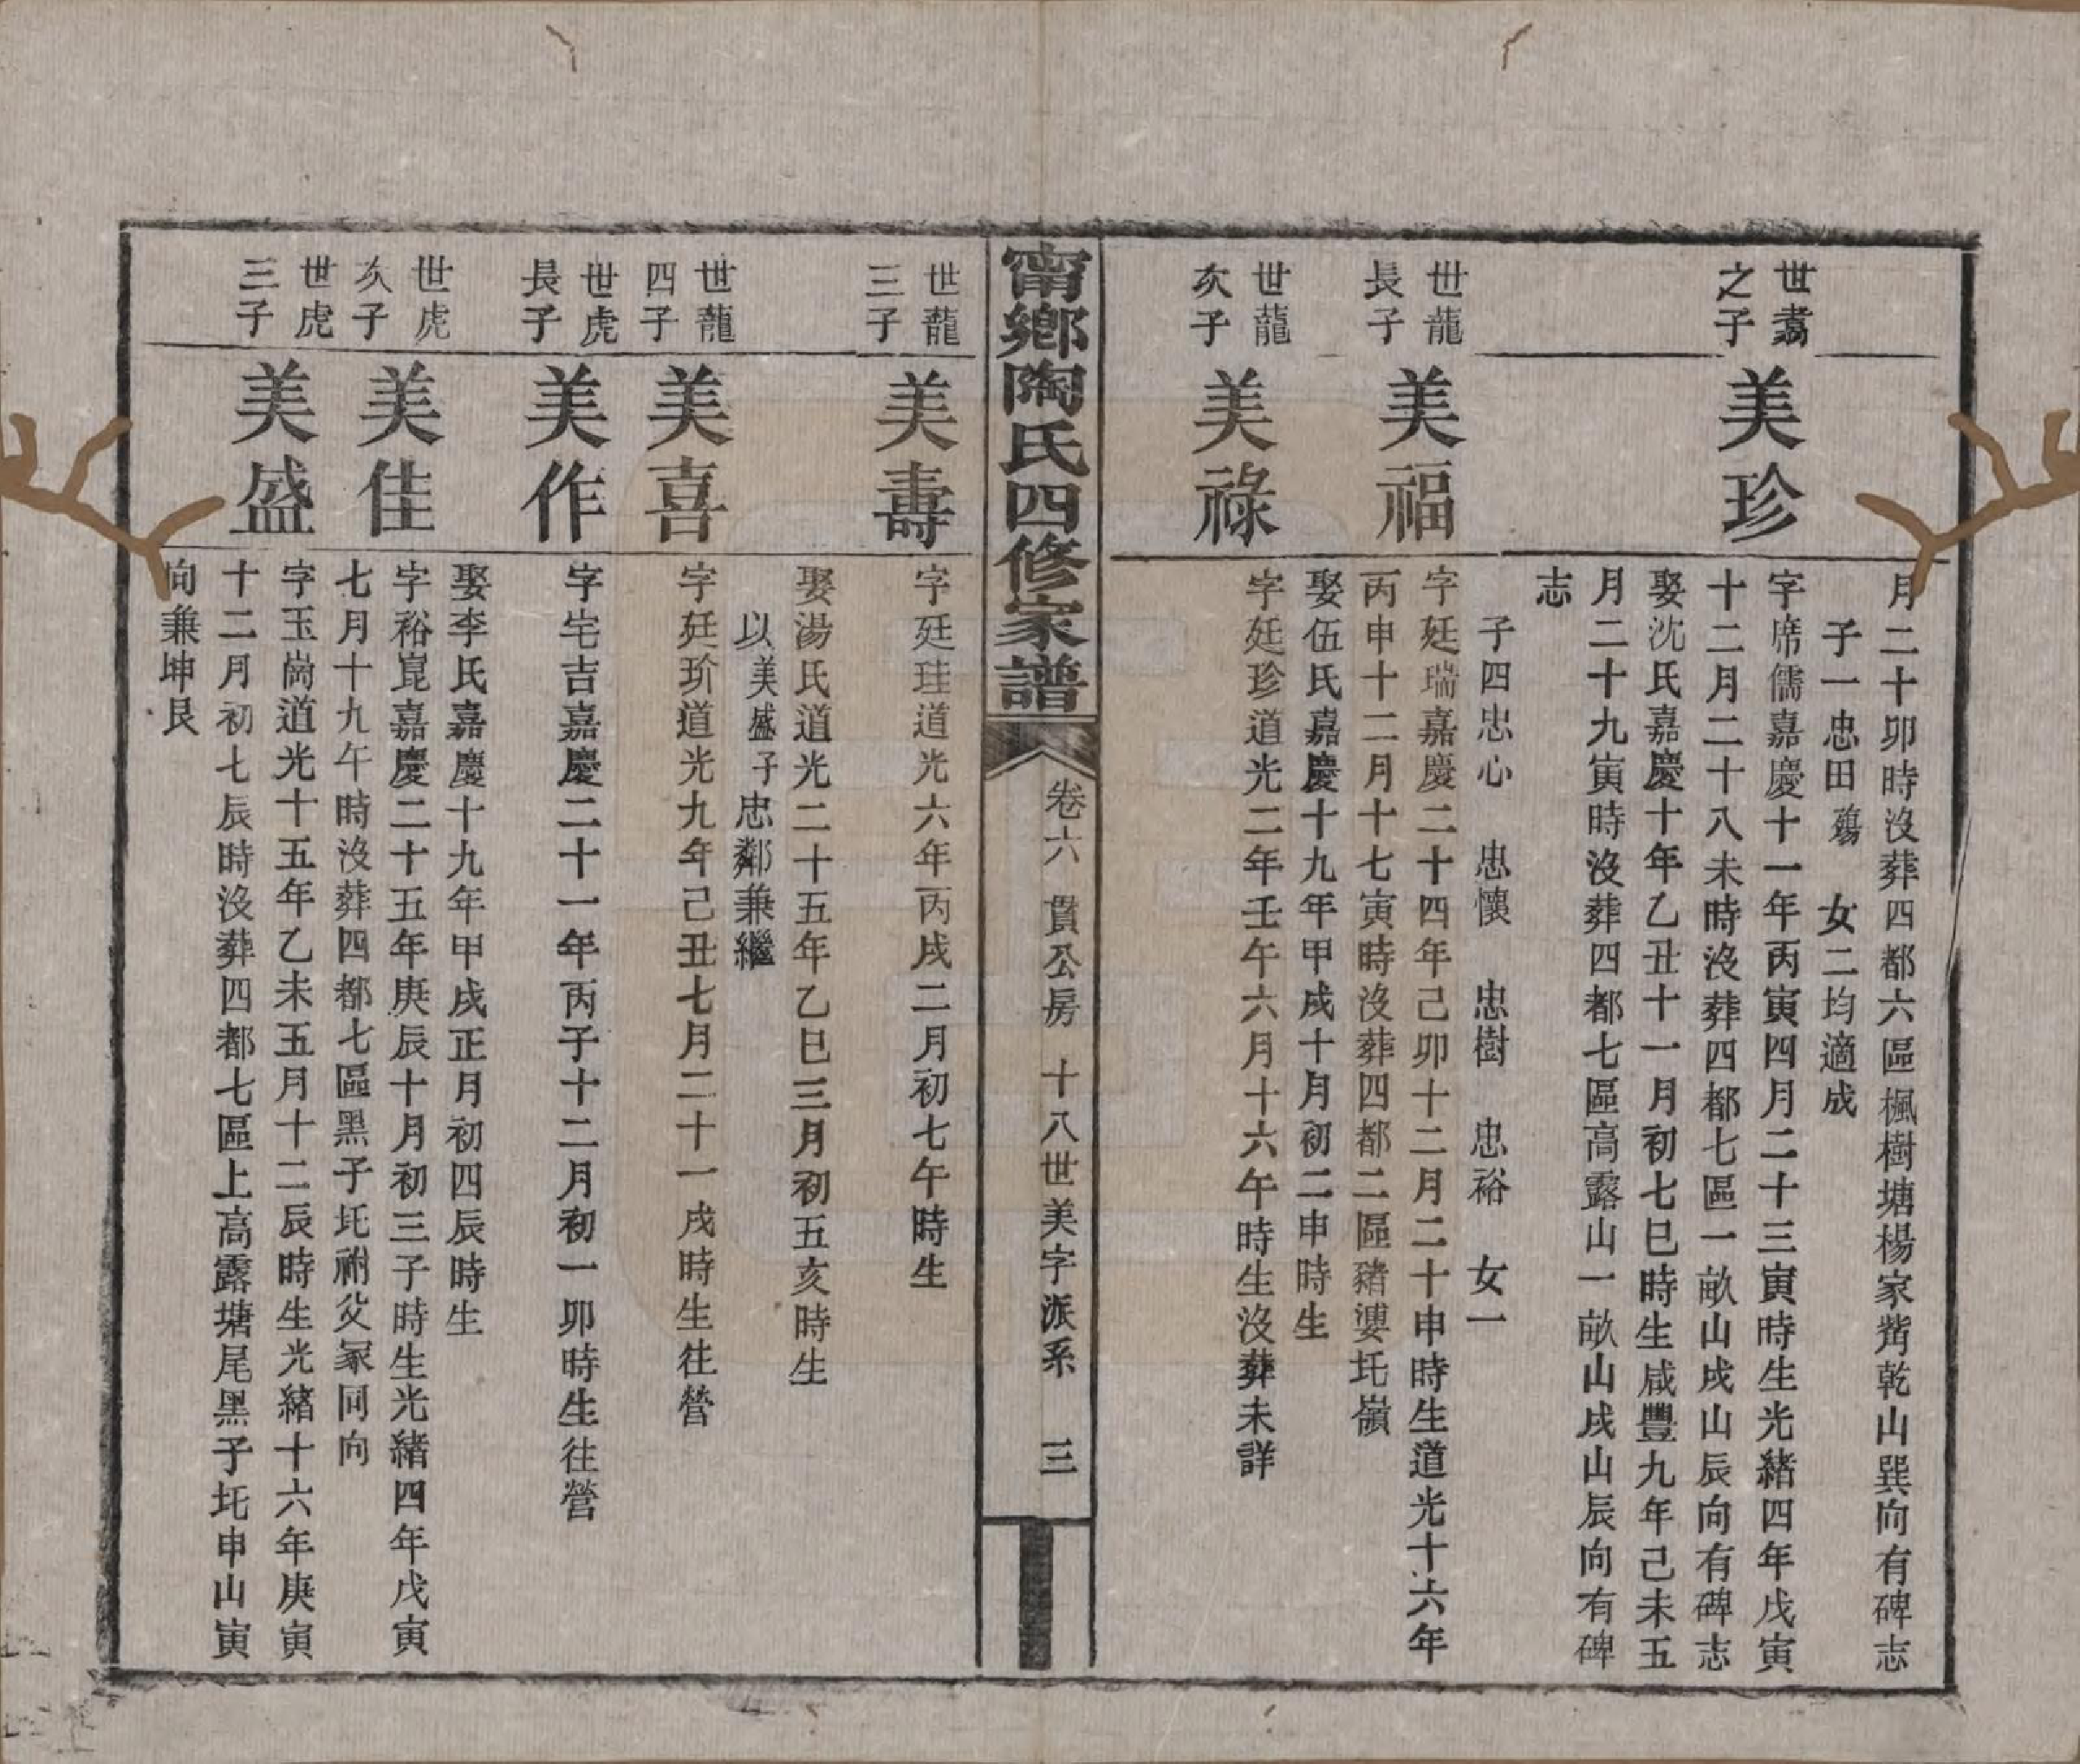 月二十卯時沒葬四都六區楓樹塘楊家嘴乾山巽向有碑志
子一忠田殤　女二均適成
世翥之子
美珍
字席儒嘉慶十一年丙寅四月二十三寅時生光緒四年戊寅
十二月二十八未時沒葬四都七區一畝山戌山辰向有碑志
娶沈氏嘉慶十年乙丑十一月初七巳時生咸豐九年己未五
月二十九寅時沒葬四都七區高露山一畝山戌山辰向有碑
志
子四忠心　忠懷　忠樹　忠裕　女一
世龍長子
美福
字廷瑞嘉慶二十四年己卯十二月二十申時生道光十六年
丙申十二月十七寅時沒葬四都二區豬婆坉嶺
娶伍氏嘉慶十九年甲戌十月初二申時生
世龍次子
美祿
字廷珍道光二年壬午六月十六午時生沒葬未詳
甯鄉陶氏四修家譜
卷六　貫公房　十八世美字派系　三
世龍三子
美壽
字廷珪道光六年丙戌二月初七午時生
娶湯氏道光二十五年乙巳三月初五亥時生
以美盛子忠鄰兼繼
世龍四子
美喜
字廷玠道光九年己丑七月二十一戌時生往營
世虎長子
美作
字宅吉嘉慶二十一年丙子十二月初一卯時生往營
娶李氏嘉慶十九年甲戌正月初四辰時生
世虎次子
美佳
字裕崑嘉慶二十五年庚辰十月初三子時生光緒四年戊寅
七月十九午時沒葬四都七區黑子坉祔父冢同向
世虎三子
美盛
字玉崗道光十五年乙未五月十二辰時生光緒十六年庚寅
十二月初七辰時沒葬四都七區上高露塘尾黑子坉申山寅
向兼坤艮